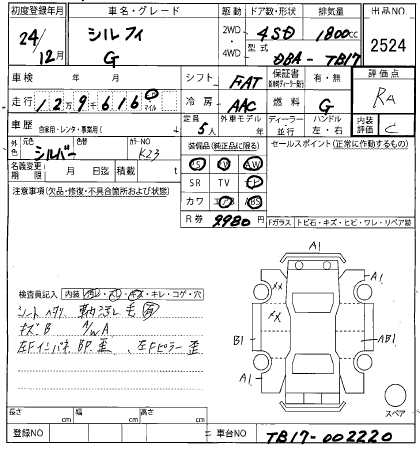 初度登録年月
24/12月
車名・グレード
シルフィ
G
駆動
2WD
4WD
ドア数・形状
4SD
排気量
1800cc
型式
DBA-TB17
出品NO.
2524
車検 年 月
シフト FAT
保証書 有・無
評価点
RA
走行 12万9千616 マイル
冷房 AAC
燃料 G
車歴 自家用・レンタ・事業用( )
定員 5人
外車モデル 年
ディーラー 並行
ハンドル 左・右
内装評価 C
外色 元色 シルバー 色替 カラーNO K23
装備品(純正品に限る)
セールスポイント(正常に作動するもの)
名義変更期限 月 日迄 積載 t
PS PW AW
SR TV ナビ
カワ エアB ABS
注意事項(欠品・修復・不具合箇所および状態)
R券 9980円
Fガラス トビ石・キズ・ヒビ・ワレ・リペア跡
A1
A1
××
××
B1
AB1
A1
スペア
検査員記入 内装 ヨゴレ・スレ・キズ・キレ・コゲ・穴
シートヘタリ
キズB A/W A
左Fインパネ BP歪、左Fピラー歪
長さ cm 幅 cm 高さ cm
登録NO
車台NO TB17-002220